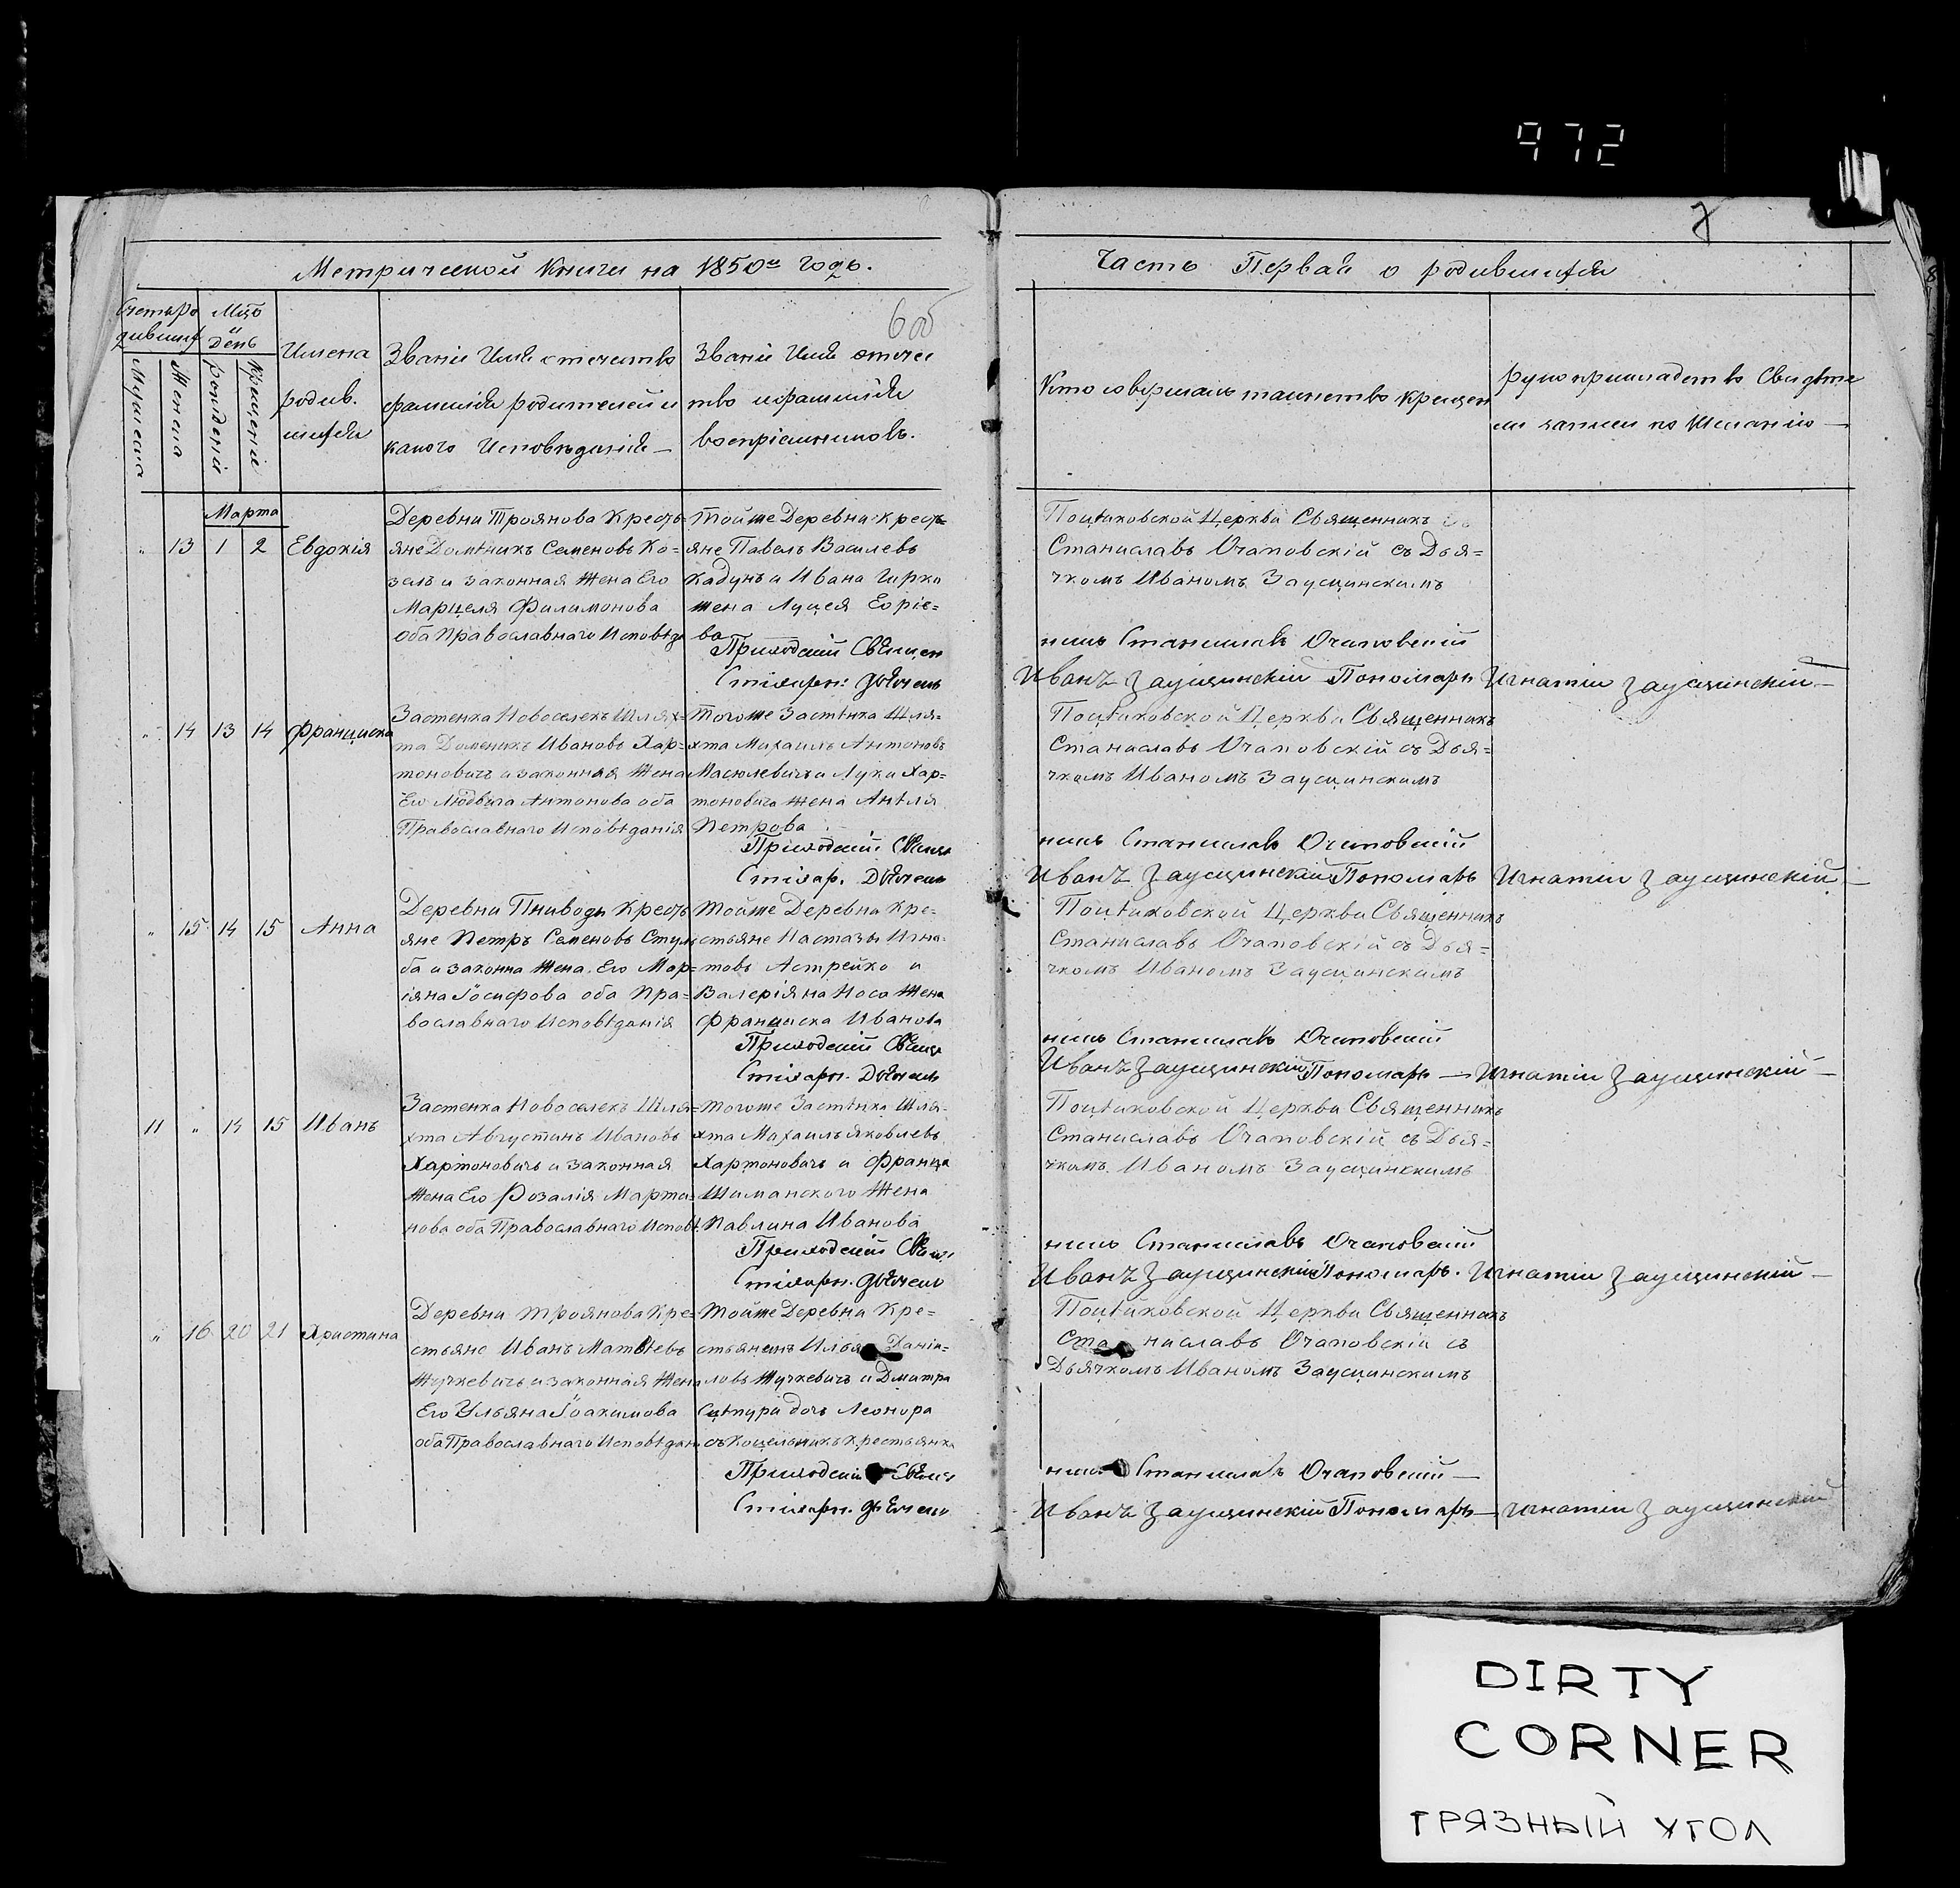 972
7
Метрической Книги на 1850й годъ.
Часть Первая о родившихся
Счетъ ро
дившихъ
Мужеска
Женска
день
рожденія
крещенія
Имена
родив.
шихся
Званіе Имя отечество
фамилія родителей и
какого Исповѣданія
Званіе Имя отечес
тво и фамилія
воспріемниковъ.
Кто совершалъ таинство крещен
рукоприкладство Свидѣте
ли записи по Желанію
Марта
„ 13 1 2 Евдокія
Деревни Троянова Кресть-
яне Доминикъ Семеновъ Ко=
зелъ и законная Жена Его
Марцеля Филимонова
оба Православнаго Исповѣда
Тойже Деревни Кресть=
яне Павелъ Василевъ
Кадунъ и Ивана Гирки
жена Луцея
ва
Приходскій Священ
Станиславъ Очаповскій съ Дья=
чкомъ Иваномъ Заусцинскимъ
никъ Станиславъ Очаповскій
Иванъ Заусцинскій Пономарь Игнатій Заусцинскій
„ 14 13 14 Франциска
Застенка Новоселекъ Шлях=
та Доменикъ Ивановъ Хар=
тоновичъ и законная Жена
Его Людвига Антонова оба
Православнаго Исповѣданія
Тогоже Застѣнка Шля=
хта Михаилъ Антоновъ
Масюлевичъ и Луки Хар=
тоновича жена Анѣля
Петрова
Приходскій Свящ
Церкви Священникъ
Станиславъ Очаповскій съ Дья=
чкомъ Иваномъ Заусцинскимъ
никъ Станиславъ Очаповскій
Иванъ Заусцинскій Пономарь Игнатій Заусцинскій
„ 15 14 15 Анна
Деревни Пниводы Кресть
яне Петръ Семеновъ
ба и законна Жена Его Мар=
іяна Іосифова оба Пра=
вославнаго Исповѣданія
Тойже Деревни Кре=
стьяне Настазы Игна=
товъ Астрейко и
Валеріяна Носа Жена
Франциска Иванова
Приходскій Свящ
Церкви Священникъ
Станиславъ Очаповскій съ Дья=
чкомъ Иваномъ Заусцинскимъ
никъ Станиславъ Очаповскій
Иванъ Заусцинскій Пономарь Игнатій Заусцинскій
11 „ 14 15 Иванъ
Застенка Новоселекъ Шля=
хта Августинъ Ивановъ
Хартоновичъ и законная
Жена Его Розалія Марти=
нова оба Православнаго Исповѣ.
Тогоже Застѣнка Шля=
хта Михаилъ Яковлевъ
Хартоновичъ и Франца
Шиманского Жена
Павлина Иванова
Приходскій Свящ
Церкви Священникъ
Станиславъ Очаповскій съ Дья=
чкомъ Иваномъ Заусцинскимъ
никъ Станиславъ Очаповскій
Иванъ Заусцинскій Пономарь. Игнатій Заусцинскій
„ 16 20 21 Христина
Деревни Троянова Кре=
стьяне Иванъ Матвѣевъ
Жучкевичъ и законная Жена
Его Ульяна Іоакимова
оба Православнаго Исповѣдан.
Тойже Деревни Кре=
стьянинъ Илья Даніи=
ловъ Жучкевичъ и Дмитра
дочь Леонора
крестьянка
Приходскій Свящ
Церкви Священникъ
Станиславъ Очаповскій съ
Дьячкомъ Иваномъ Заусцинскимъ
никъ Станиславъ Очаповскій
Иванъ Заусцинскій Пономарь Игнатій Заусцинскій
DIRTY
CORNER
ГРЯЗНЫЙ УГОЛ